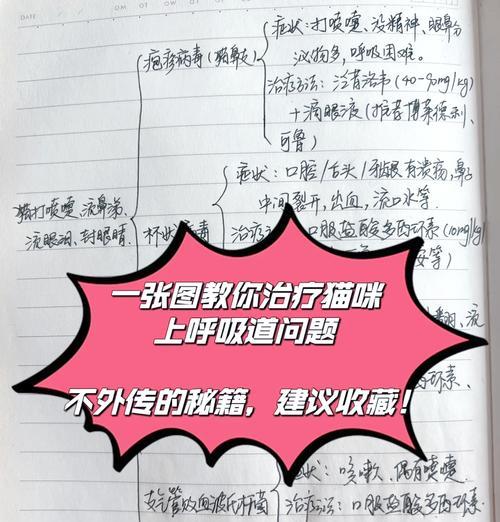 DATE
症状:打喷嚏、没精神、眼鼻分
疱疹病毒(猫鼻支)
泌物多,呼吸困难。
治疗方法:泛昔洛韦(40-90mg/kg)
+滴眼液(推荐博莱德利、
可鲁)
症状:口腔/舌头/牙龈有溃疡,鼻
中间裂开,出血,流口水等.
猫打喷嚏、流鼻涕、
流眼泪、封眼睛.
杯状 毒
治疗 口服盐酸多西环素(10mg/kg)
等)
一张图教你治疗猫咪
上呼吸道问题
、流
不外传的秘籍,建议收藏!
环素、
症状:咳嗽、偶有喷嚏
支气管败血波氏杆菌
治疗方法:口服盐酸多西环素